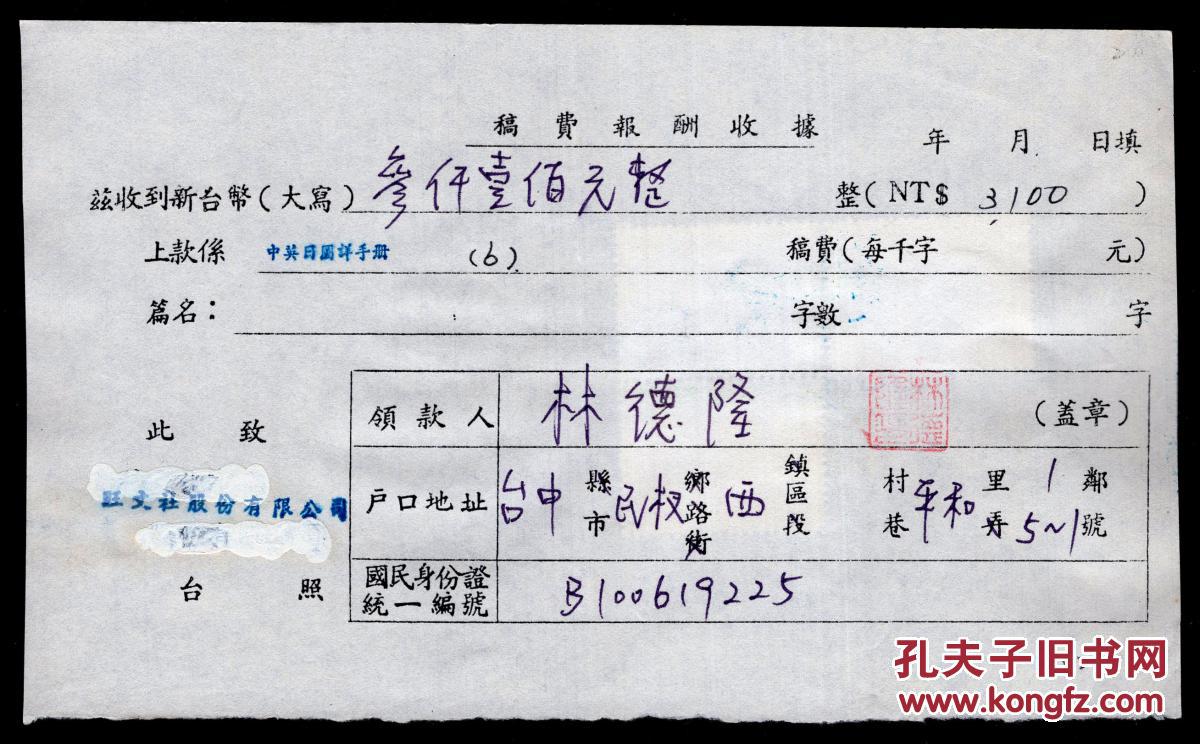 稿費報酬收據
年 月 日填
茲收到新台幣(大寫)參仟壹佰元整 整(NT$ 3,100 )
上款係 中英日圖詳手册 (6) 稿費(每千字 元)
篇名: 字數 字
此致
旺文社股份有限公司
台照
領款人 林德隆 (蓋章)
戶口地址 台中縣市 民权鄉路街 西鎮區段 村巷 平和里弄 1鄰 5~1號
國民身份證統一編號 B100619225
孔夫子旧书网
www.kongfz.com